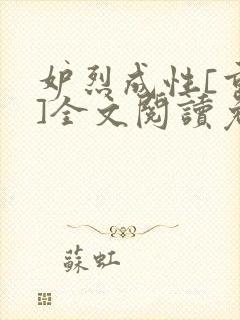 妒烈成性[重
]全文閱讀老
蘇虹